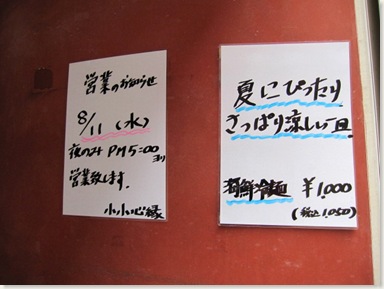 営業のお知らせ
8/11(水)
夜のみPM5:00より
営業致します.
小小心縁
夏にぴったり
さっぱり涼しい一皿
海鮮冷麺 ¥1,000
(税込1,050)